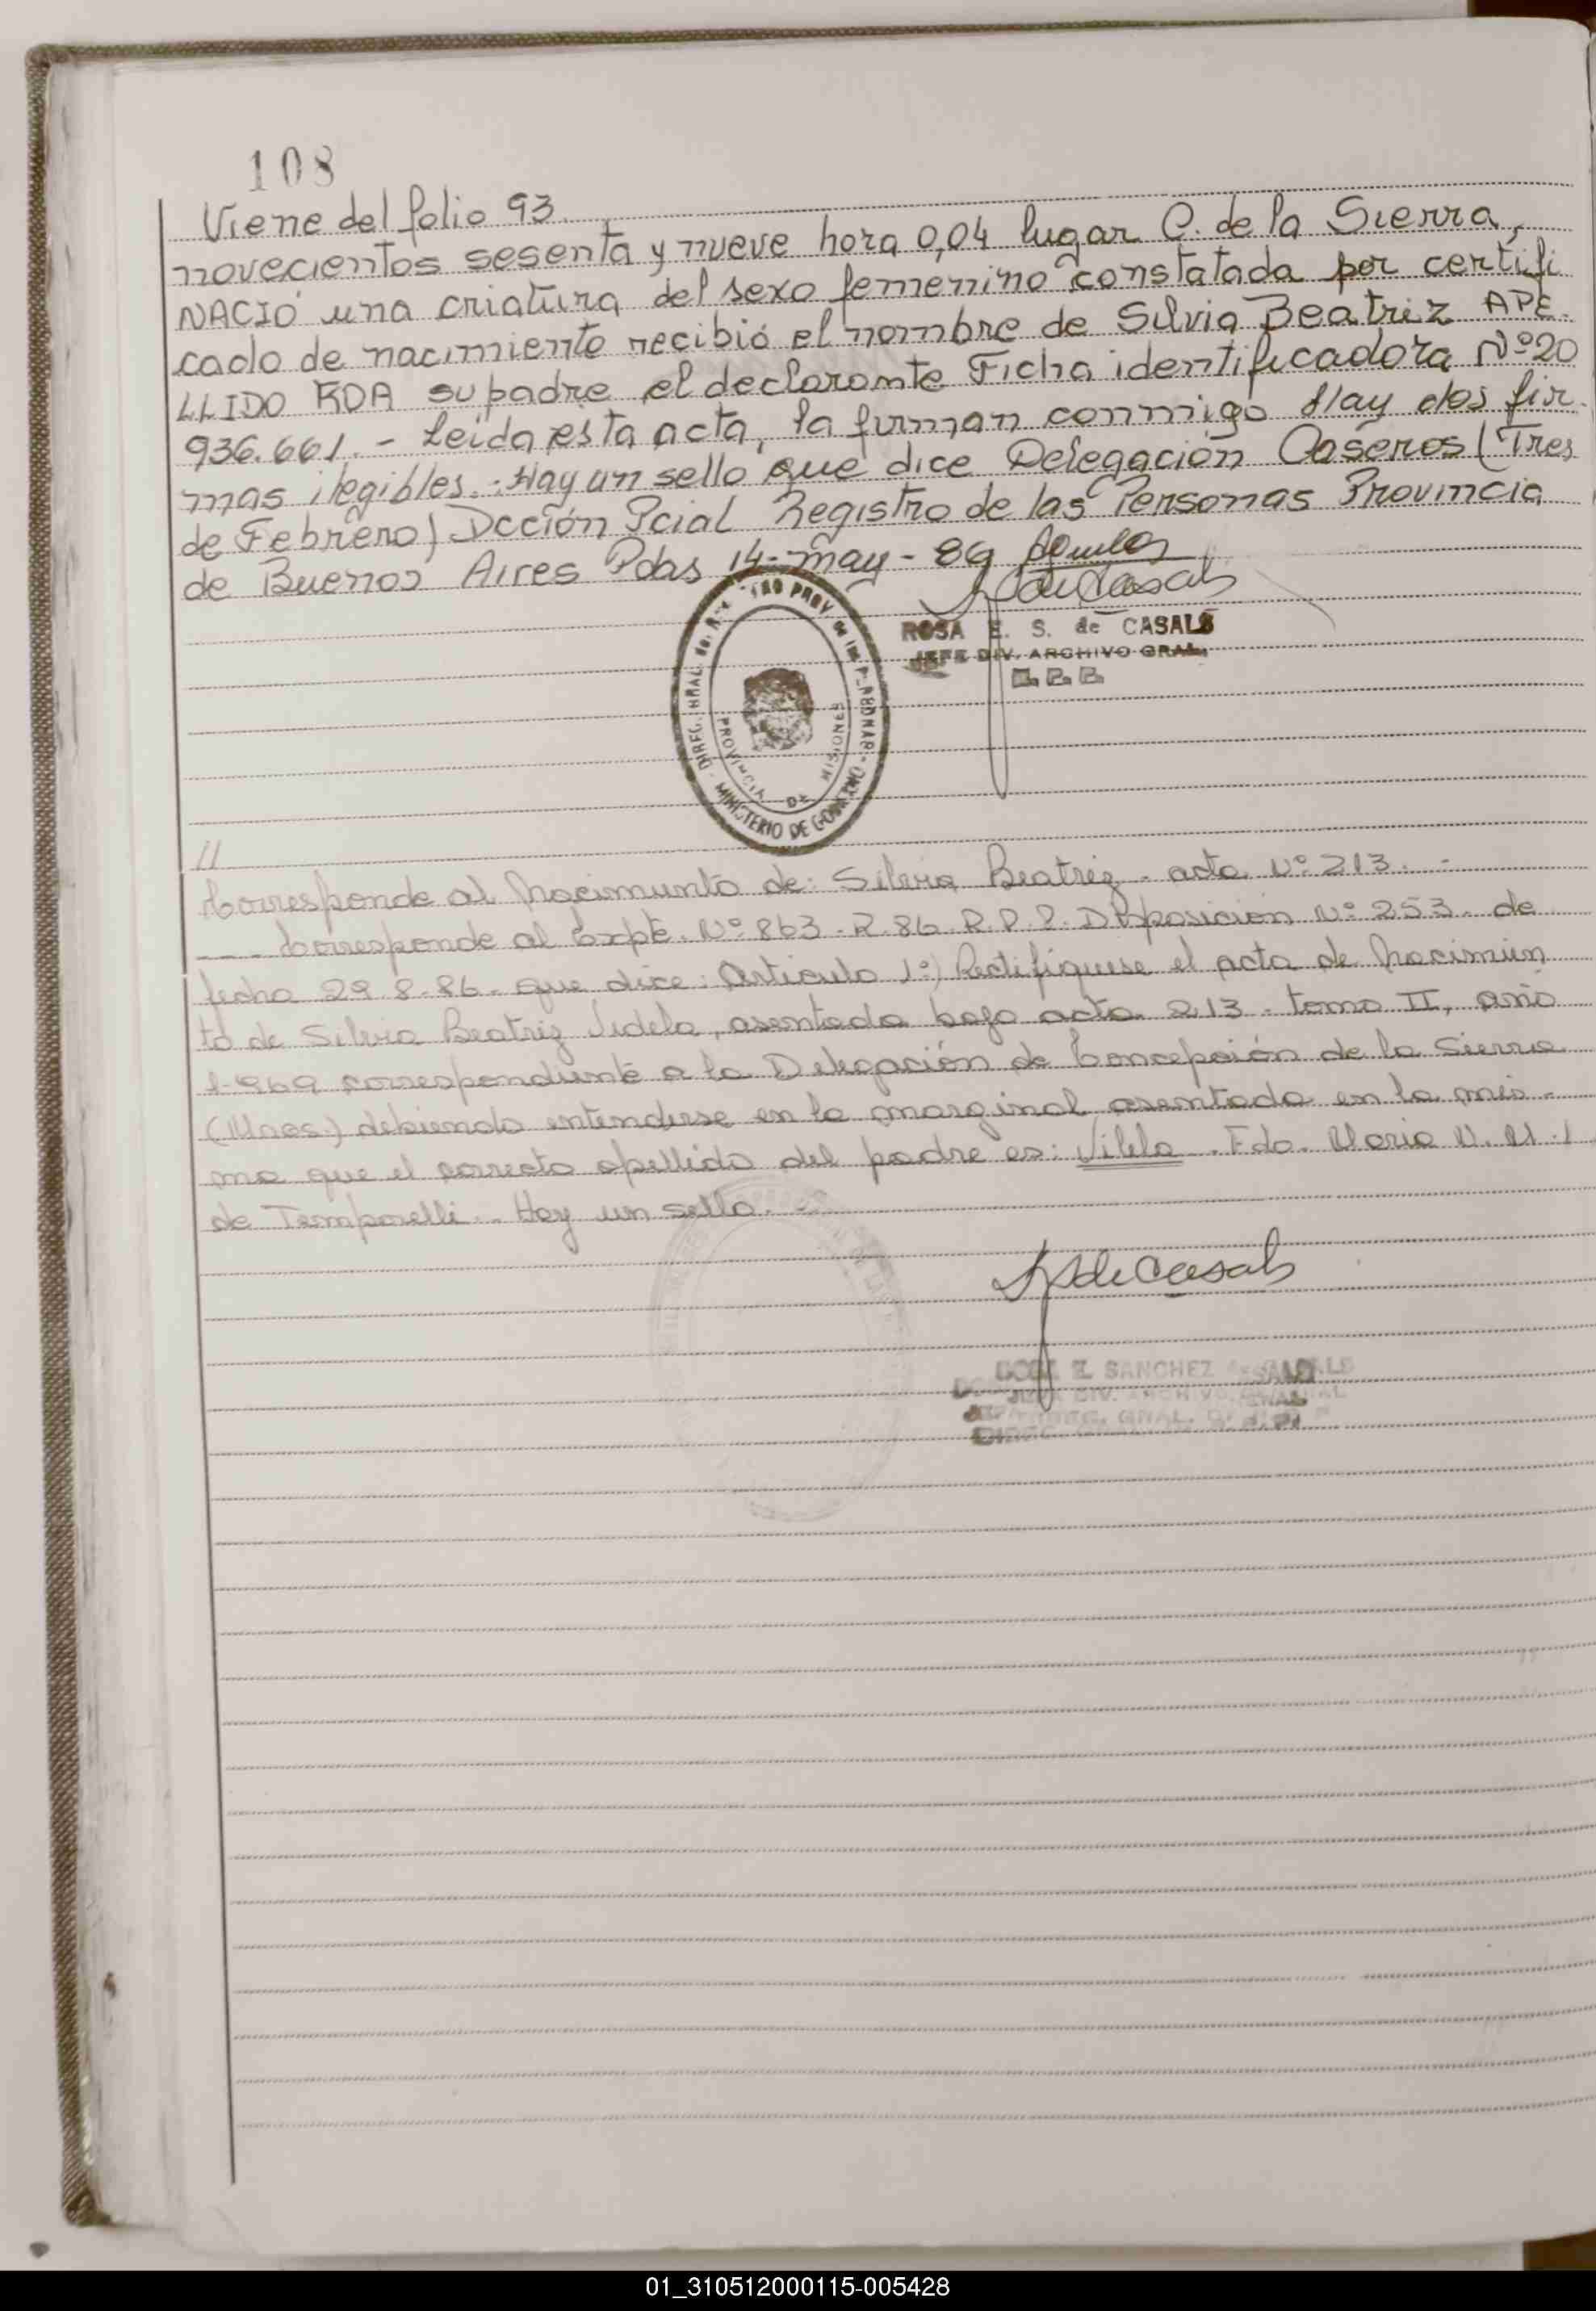 108
Viene del folio 93.
novecientos sesenta y nueve hora 0,04 lugar C. de la Sierra,
NACIÓ una criatura del sexo femenino constatada por certifi
cado de nacimiento recibió el nombre de Silvia Beatriz APE
LLIDO su padre el declarante Ficha identificadora Nº 20
936.661. - Leída esta acta, la firman conmigo Hay dos fir
mas ilegibles.: Hay un sello que dice Delegación Caseros (Tres
de Febrero) Dcción Pcial Registro de las Personas Provincia
de Buenos Aires Pdas 14-may-89
ROSA E. S. de CASALS
JEFE DIV. ARCHIVO GRAL.
MINISTERIO DE GOBIERNO
PROVINCIA DE MISIONES
11
Corresponde al Nacimiento de: Silvia Beatriz - acta Nº 213. -
--- Corresponde al Expte. Nº 863-R-86-R.P.P. Disposición Nº 253- de
fecha 29-8-86- que dice: Artículo 1º) Rectifiquese el acta de Nacimien
to de Silvia Beatriz, asentada bajo acta 213 - tomo II, año
1.969 correspondiente a la Delegación de Concepción de la Sierra
(Mnes.) debiendo entenderse en la marginal asentada en la mis-
ma que el correcto apellido del padre es: Vilela. Fdo. Maria
de Temporelli. - Hay un sello.
SdeCasals
E. SANCHEZ